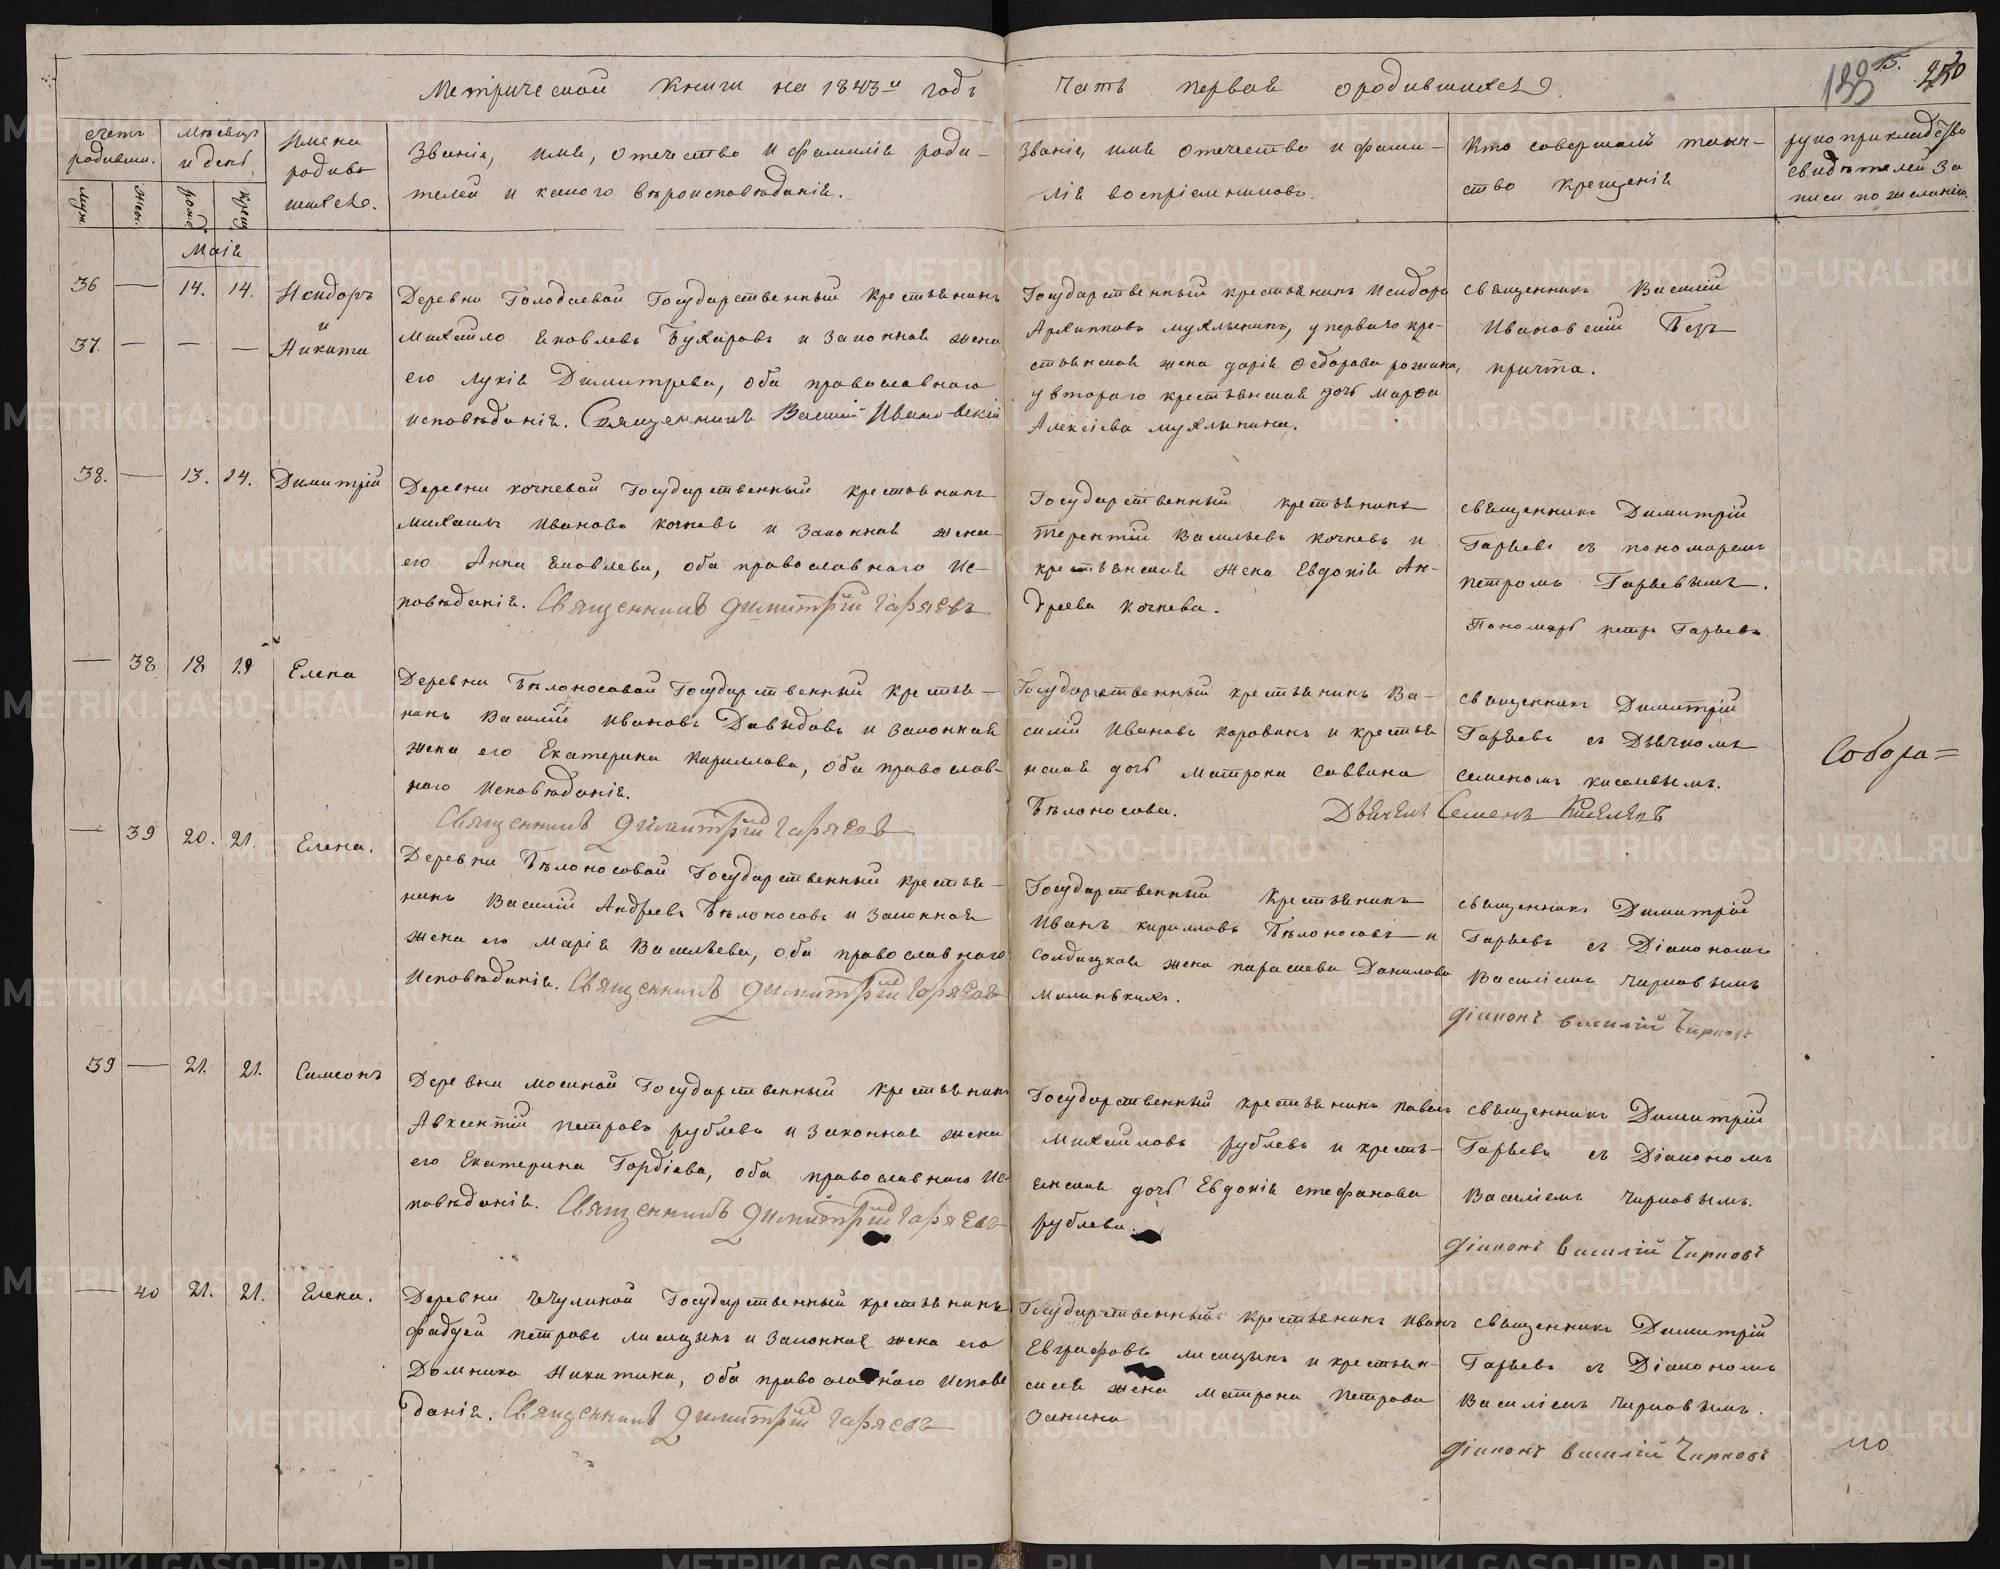 Метрической Книги на 1843й годъ
Часть первая о родившихся.
счетъ родивши.
муж.
жен.
мѣсяцъ и день
рожд.
крещ
Имена родив шихся.
Званіе, имя, отечество и фамилія роди-
телей и какого вѣроисповѣданія.
Званіе, имя отечество и фами-
лія воспріемниковъ.
Кто совершалъ таин-
ство крещенія
рукоприкладство
свидѣтелей за
писи по желанію.
Маія
36 — 14. 14. Исидоръ
и
37. — — — Никита
Деревни Голодаевой Государственный крестьянинъ
Михайло Яковлевъ Бухаровъ и законная жена
его Лукія Димитрева, оба православнаго
исповѣданія. Священникъ Василій Ивановскій
Государственный крестьянинъ Исидоръ
Архиповъ Мухлынинъ, у перваго кре-
стьянская жена Дарія Ѳедорова
у втораго крестьянская дочь Марѳа
Алексіева Мухлынина.
священникъ Василій
Ивановскій Безъ
причта.
38. — 13. 14. Димитрій
Деревни Кочневой Государственный крестьянинъ
Михаилъ Ивановъ Кочневъ и законная жена
его Анна Яковлева, оба православнаго ис-
повѣданія. Священникъ Димитрій Гаряевъ
Государственный крестьянинъ
Терентій Васильевъ Кочневъ и
крестьянская жена Евдокія Ан-
дреева Кочнева.
священникъ Димитрій
Гаряевъ съ пономаремъ
Петромъ Гаряевымъ.
Пономарь Петръ Гаряевъ
— 38 18 19 Елена
Деревни Бѣлоносовой Государственный крестья-
нинъ Василій Ивановъ Давыдовъ и законная
жена его Екатерина Кириллова, оба православ-
наго исповѣданія.
Священникъ Димитрій Гаряевъ
Государственный крестьянинъ Ва-
силій Ивановъ Коровинъ и крестья
нская дочь Матрона Саввина
Бѣлоносова.
священникъ Димитрій
Гаряевъ съ Дьячкомъ
Семеномъ Киселевымъ.
Дьячекъ Семенъ Киселевъ
Собора=
— 39 20. 21. Елена.
Деревни Бѣлоносовой Государственный крестья-
нинъ Василій Андреевъ Бѣлоносовъ и законная
жена его Марія Васильева, оба православнаго
Исповѣданія. Священникъ Димитрій Гаряевъ
Государственный крестьянинъ
Иванъ Кирилловъ Бѣлоносовъ и
солдатская жена Параскева Данилова
Малиньких.
священникъ Димитрій
Гаряевъ съ Діакономъ
Василіемъ Чирковымъ
Діаконъ Василій Чирковъ
39 — 21. 21. Симеонъ
Деревни Мосиной Государственный крестьянинъ
Авксентій Петровъ Рублевъ и законная жена
его Екатерина Гордіева, оба православнаго ис-
повѣданія. Священникъ Димитрій Гаряевъ
Государственный крестьянинъ Павелъ
Михайловъ Рублевъ и кресть-
янская дочь Евдокія Стефанова
Рублева.
священникъ Димитрій
Гаряевъ съ Діакономъ
Василіемъ Чирковымъ.
Діаконъ Василій Чирковъ
— 40 21. 21. Елена.
Деревни Чечулиной Государственный крестьянинъ
Фадей Петровъ Лисицынъ и законная жена его
Домника Никитина, оба православнаго исповѣ
данія. Священникъ Димитрій Гаряевъ
Государственный крестьянинъ Иванъ
Евграфовъ Лисицынъ и крестьян-
ская жена Матрона Петрова
Занина
священникъ Димитрій
Гаряевъ съ Діакономъ
Василіемъ Чирковымъ.
Діаконъ Василій Чирковъ
METRIKI.GASO-URAL.RU